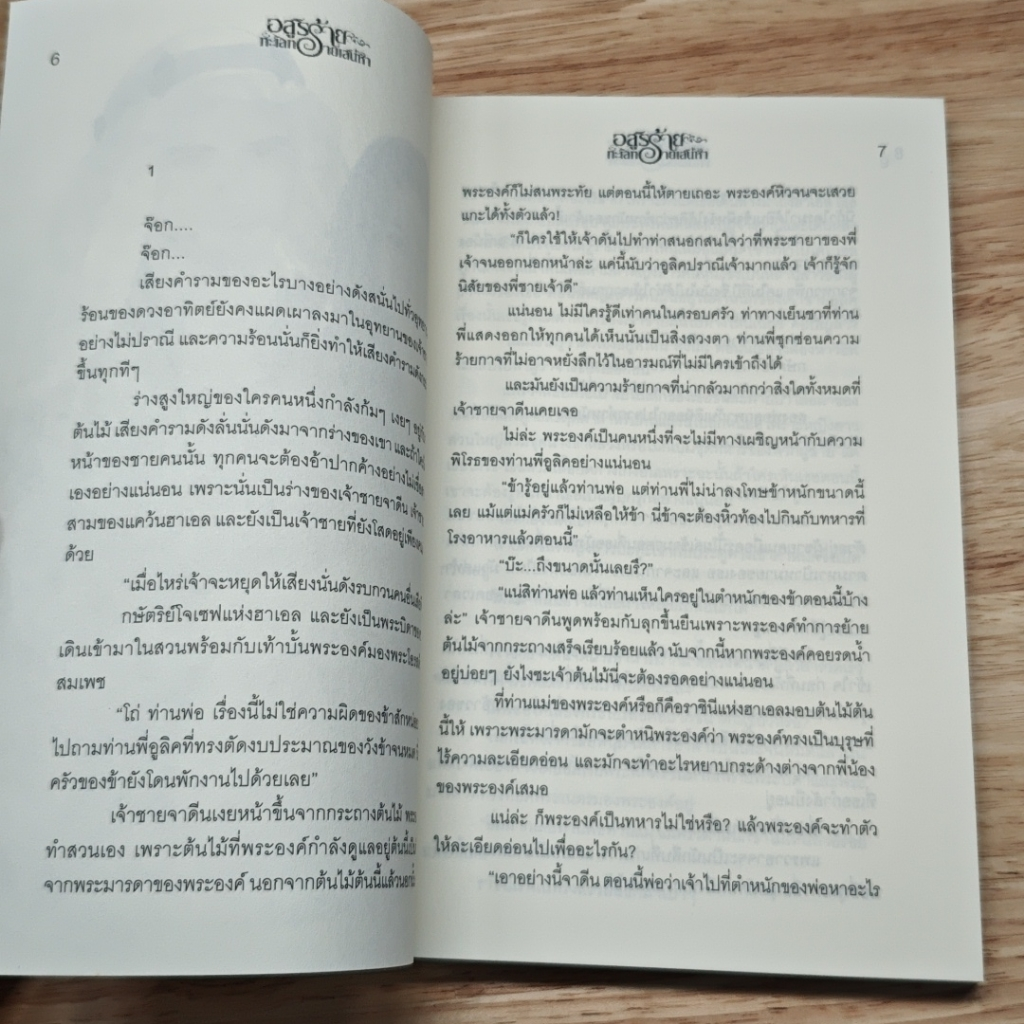 6
อสูรร้าย
ทะเลทรายเสน่หา
1
จ๊อก....
จ๊อก...
เสียงคำรามของอะไรบางอย่างดังสนั่นไปทั่ว
ร้อนของดวงอาทิตย์ยังคงแผดเผาลงมาในอุทยานของ
อย่างไม่ปราณี และความร้อนนั่นก็ยิ่งทำให้เสียงคำราม
ขึ้นทุกทีๆ
ร่างสูงใหญ่ของใครคนหนึ่งกำลังก้มๆ เงยๆ
ต้นไม้ เสียงคำรามดังลั่นนั่นดังมาจากร่างของเขา และถ้า
หน้าของชายคนนั้น ทุกคนจะต้องอ้าปากค้างอย่างไม่
เองอย่างแน่นอน เพราะนั่นเป็นร่างของเจ้าชายจาดีน
สามของแคว้นฮาเอล และยังเป็นเจ้าชายที่ยังโสดอยู่เพียง
ด้วย
“เมื่อไหร่เจ้าจะหยุดให้เสียงนั่นดังรบกวนคนอื่น
กษัตริย์โจเซฟแห่งฮาเอล และยังเป็นพระบิดา
เดินเข้ามาในสวนพร้อมกับเท้าบั้นพระองค์มองพระโอรส
สมเพช
“โถ่ ท่านพ่อ เรื่องนี้ไม่ใช่ความผิดของข้าสัก
ไปถามท่านพี่อูลิคที่ทรงตัดงบประมาณของวังข้าจนหมด
ครัวของข้ายังโดนพักงานไปด้วยเลย”
เจ้าชายจาดีนเงยหน้าขึ้นจากกระถางต้นไม้
ทำสวนเอง เพราะต้นไม้ที่พระองค์กำลังดูแลอยู่ต้นนี้
จากพระมารดาของพระองค์ นอกจากต้นไม้ต้นนี้แล้ว
อสูรร้าย
ทะเลทรายเสน่หา
7
พระองค์ก็ไม่สนพระทัย แต่ตอนนี้ให้ตายเถอะ พระองค์หิวจนจะเสวย
แกะได้ทั้งตัวแล้ว!
“ก็ใครใช้ให้เจ้าดันไปทำท่าสนอกสนใจว่าที่พระชายาของพี่
เจ้าจนออกนอกหน้าล่ะ แค่นี้นับว่าอูลิคปราณีเจ้ามากแล้ว เจ้าก็รู้จัก
นิสัยของพี่ชายเจ้าดี”
แน่นอน ไม่มีใครรู้ดีเท่าคนในครอบครัว ท่าทางเย็นชาที่ท่าน
พี่แสดงออกให้ทุกคนได้เห็นนั้นเป็นสิ่งลวงตา ท่านพี่ซุกซ่อนความ
ร้ายกาจที่ไม่อาจหยั่งลึกไว้ในอารมณ์ที่ไม่มีใครเข้าถึงได้
และมันยังเป็นความร้ายกาจที่น่ากลัวมากกว่าสิ่งใดทั้งหมดที่
เจ้าชายจาดีนเคยเจอ
ไม่ล่ะ พระองค์เป็นคนหนึ่งที่จะไม่มีทางเผชิญหน้ากับความ
พิโรธของท่านพี่อูลิคอย่างแน่นอน
“ข้ารู้อยู่แล้วท่านพ่อ แต่ท่านพี่ไม่น่าลงโทษข้าหนักขนาดนี้
เลย แม้แต่แม่ครัวก็ไม่เหลือให้ข้า นี่ข้าจะต้องหิ้วท้องไปกินกับทหารที่
โรงอาหารแล้วตอนนี้”
“บ๊ะ...ถึงขนาดนั้นเลยรึ?”
“แน่สิท่านพ่อ แล้วท่านเห็นใครอยู่ในตำหนักของข้าตอนนี้บ้าง
ล่ะ” เจ้าชายจาดีนพูดพร้อมกับลุกขึ้นยืนเพราะพระองค์ทำการย้าย
ต้นไม้จากกระถางเสร็จเรียบร้อยแล้ว นับจากนี้หากพระองค์คอยรดน้ำ
อยู่บ่อยๆ ยังไงซะเจ้าต้นไม้นี่จะต้องรอดอย่างแน่นอน
ที่ท่านแม่ของพระองค์หรือก็คือราชินีแห่งฮาเอลมอบต้นไม้ต้น
นี้ให้ เพราะพระมารดามักจะตำหนิพระองค์ว่า พระองค์ทรงเป็นบุรุษที่
ไร้ความละเอียดอ่อน และมักจะทำอะไรหยาบกระด้างต่างจากพี่น้อง
ของพระองค์เสมอ
แน่ล่ะ ก็พระองค์เป็นทหารไม่ใช่หรือ? แล้วพระองค์จะทำตัว
ให้ละเอียดอ่อนไปเพื่ออะไรกัน?
“เอาอย่างนี้จาดีน ตอนนี้พ่อว่าเจ้าไปที่ตำหนักของพ่อหาอะไร